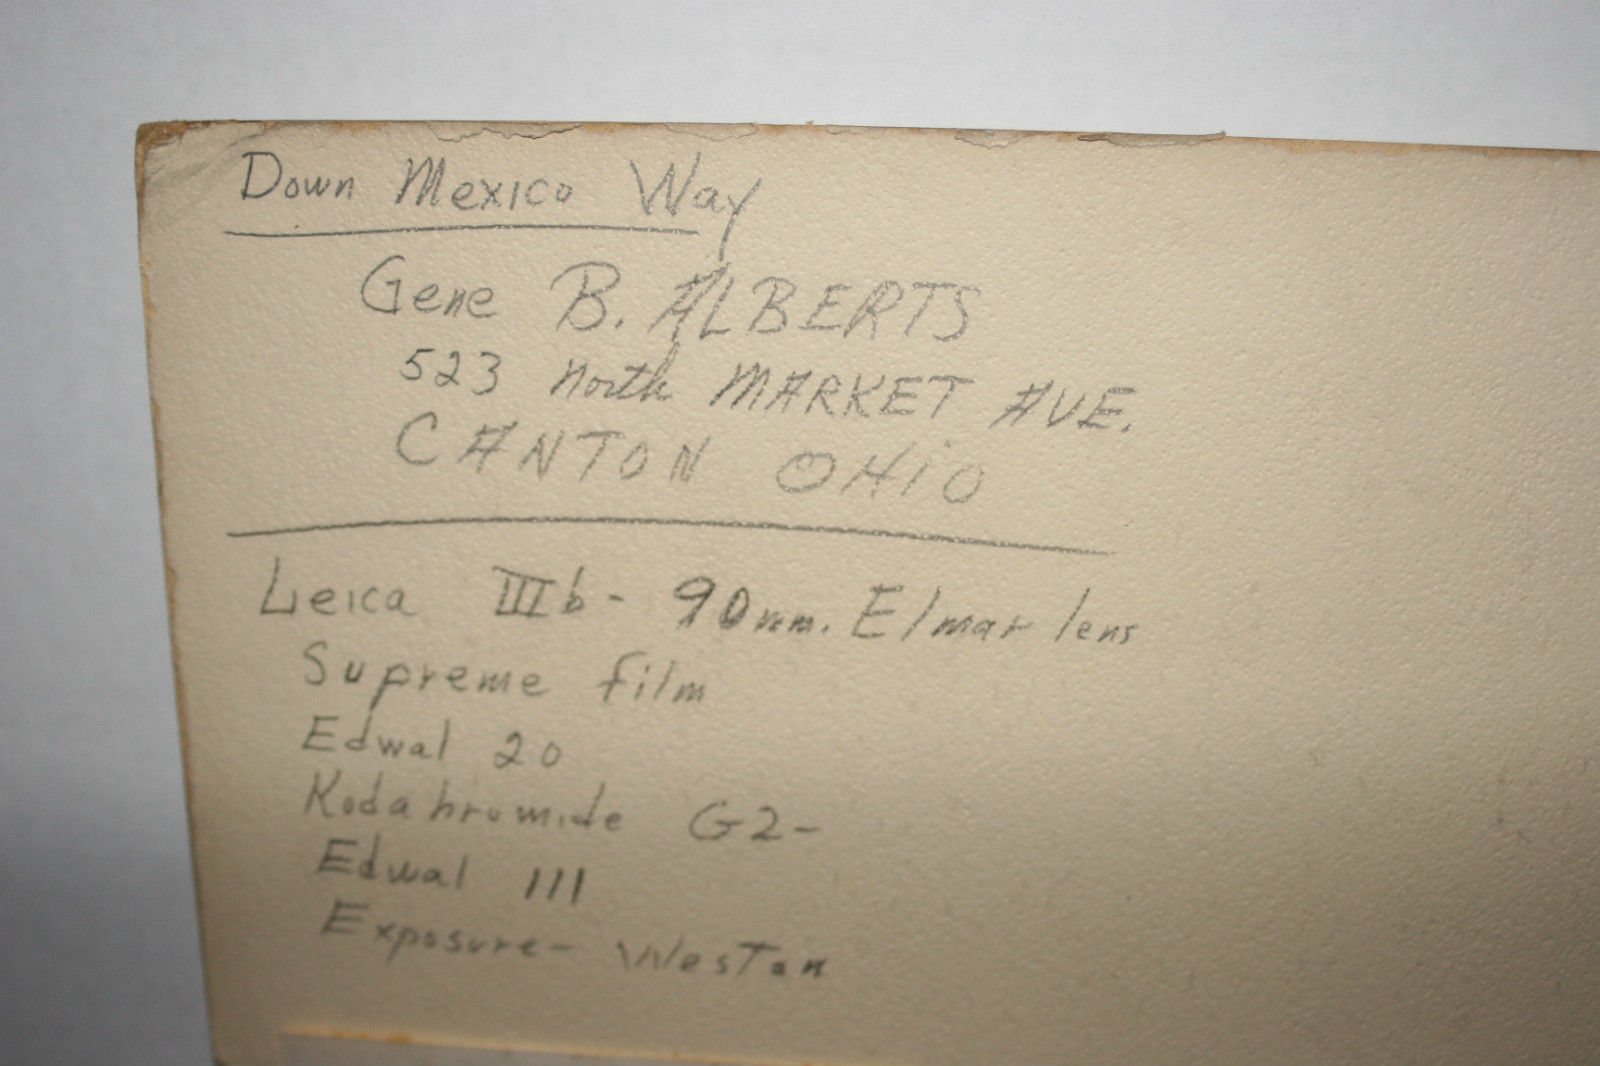 Down Mexico Way
Gene B. ALBERTS
523 North MARKET AVE.
CANTON OHiO
Leica IIIb - 90mm. Elmar lens
Supreme film
Edwal 20
Kodabrumide G2-
Edwal 111
Exposure - Weston